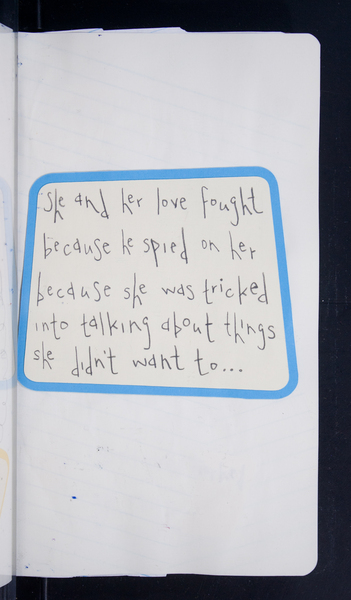 she and her love fought
because he spied on her
because she was tricked
into talking about things
she didn't want to...